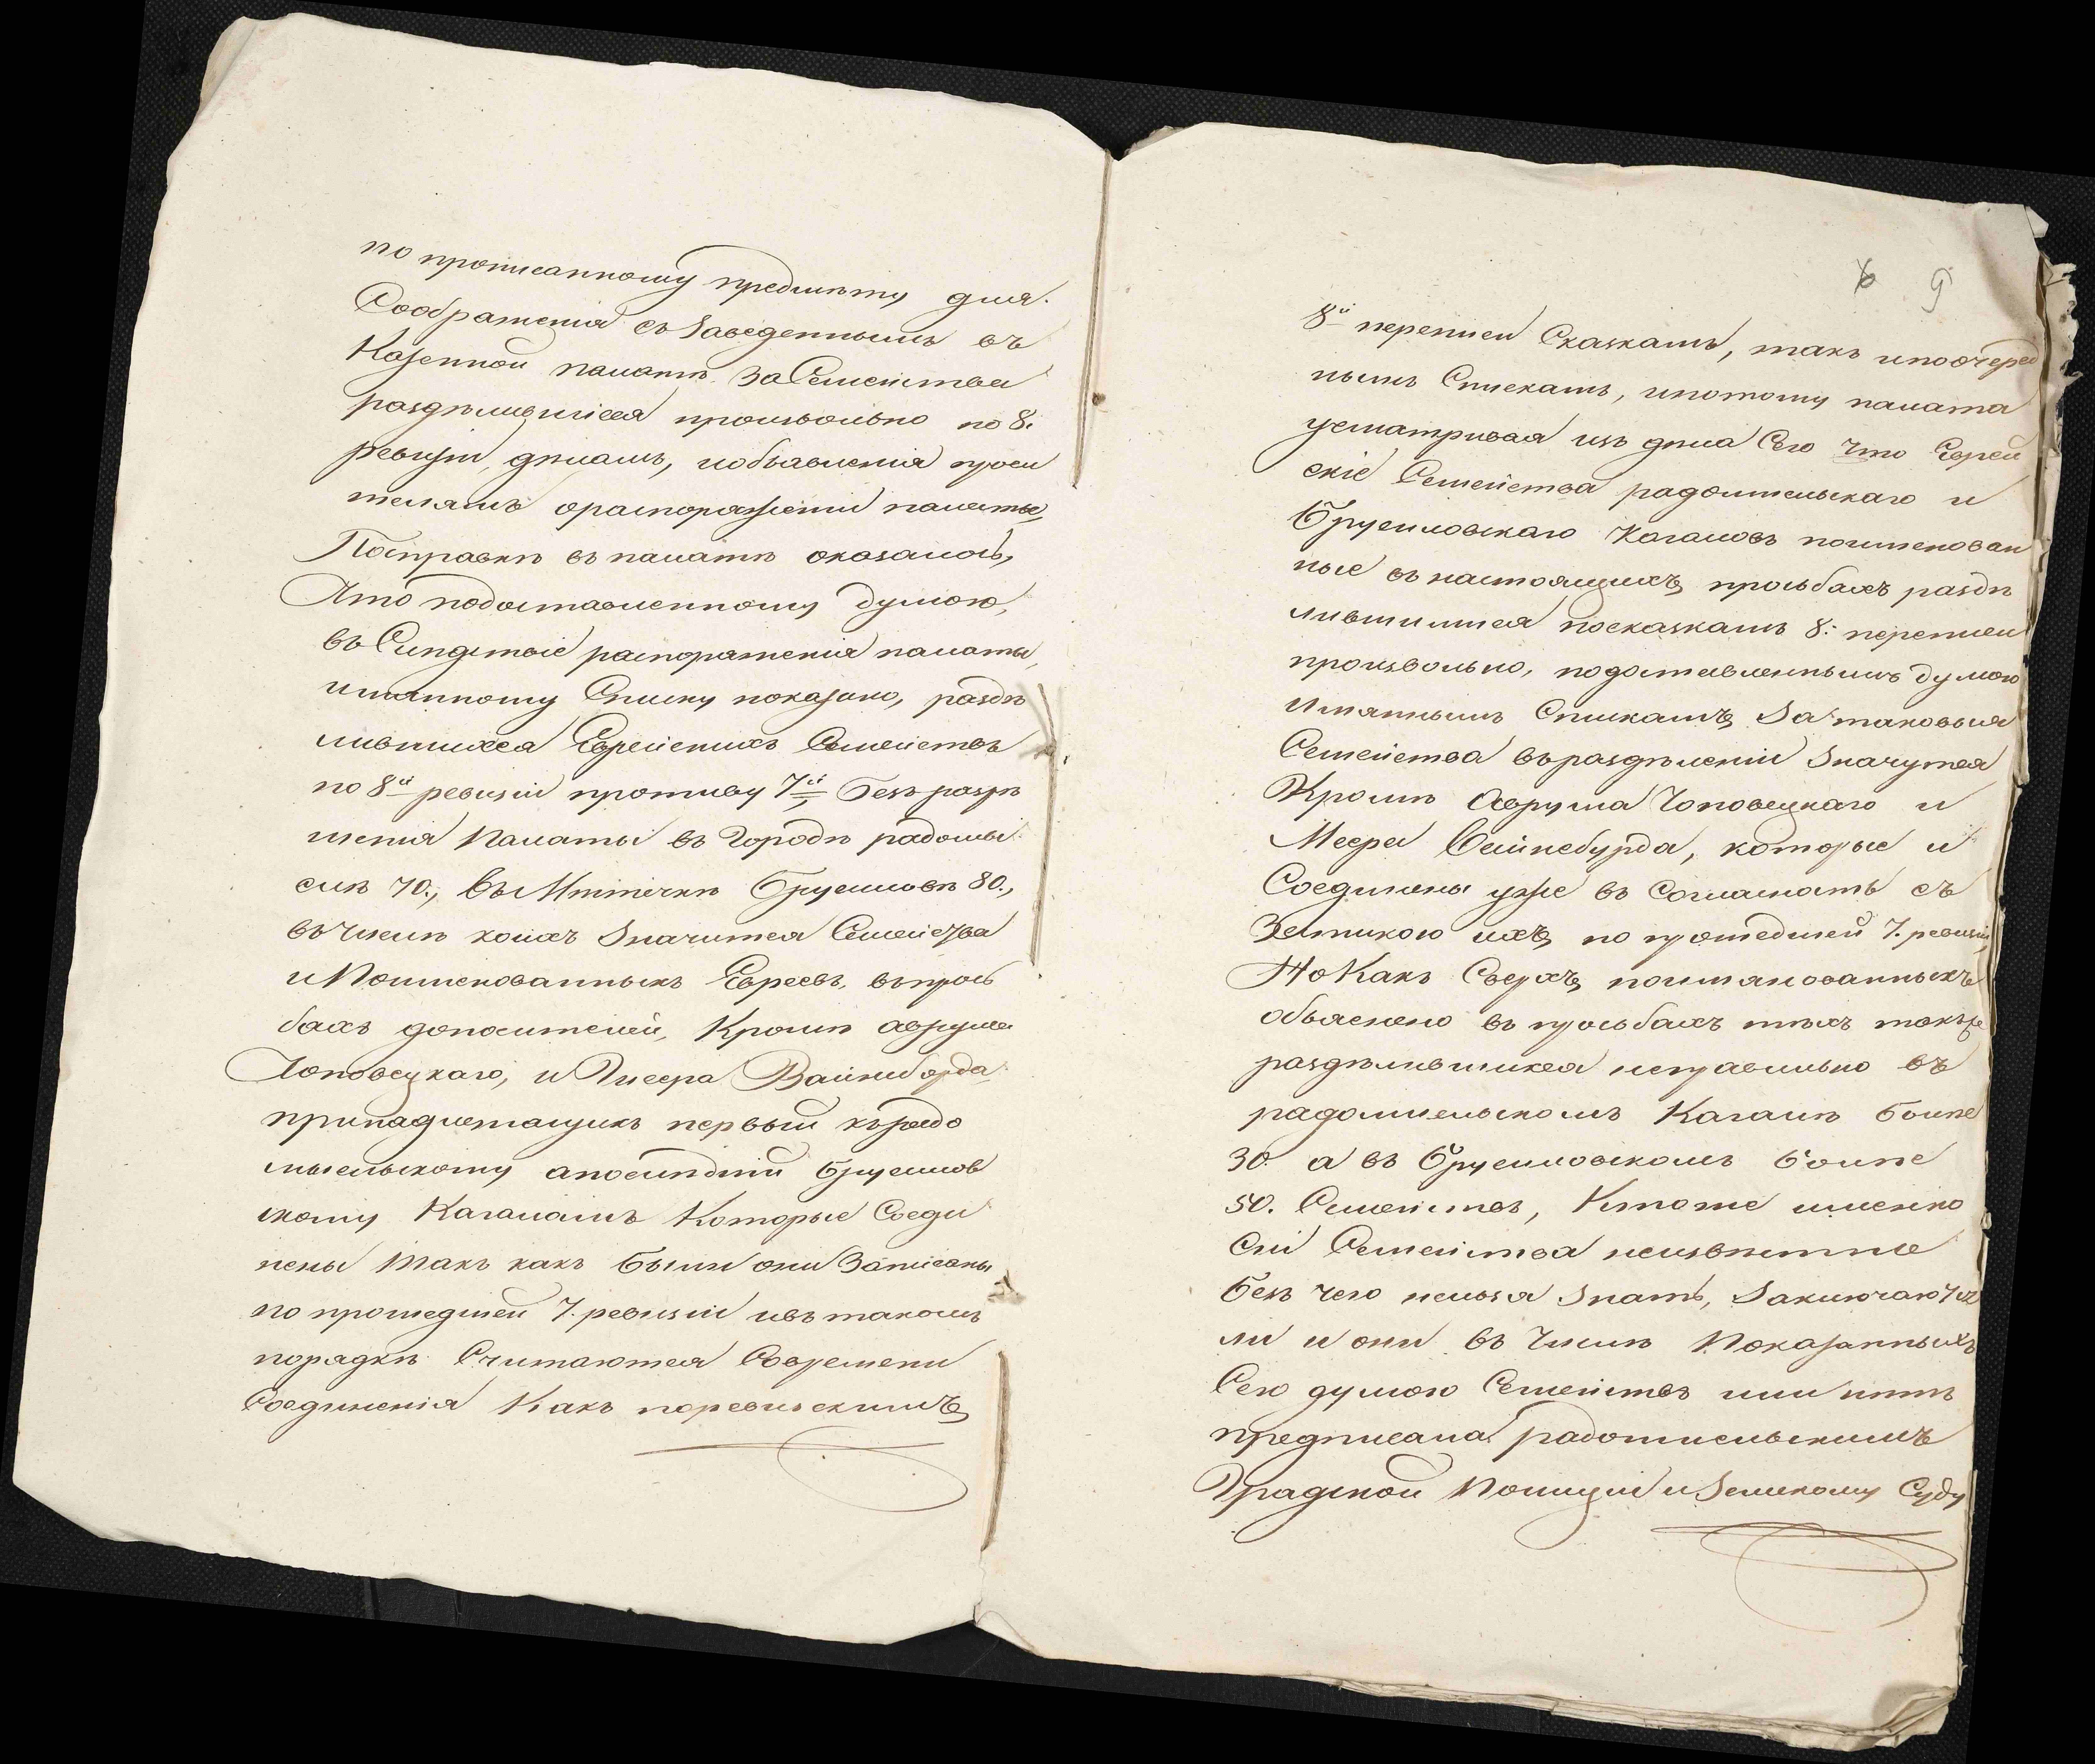 по прописанному предмѣту для
Соображенія съ Заведеннымъ въ
Казенной палатѣ за Семейства
раздѣлившіеся произвольно по 8.
ревизіи, дѣламъ, и объявленія проси
телямъ о распоряженіи палаты,
По справкѣ въ палатѣ оказалось,
Что по доставленному думою,
въ Слѣдствіе распоряженія палаты,
имянному Списку показано, раздѣ
лившихся Еврейскихъ Семействъ
по 8й ревизіи противу 7й, безъ разрѣ
шенія Палаты въ Городѣ радомы
слѣ 70., въ Мѣстечкѣ Бруемловѣ 80.,
въ числѣ коихъ Значится Семейства
и Поименованныхъ Евреевъ, въ прозь
бахъ доносителей, Кромѣ Аврума
Чоповецкаго, и Меера Вайнсборда
принадлежащихъ первый къ радо
мысльскому а послѣдній бруемлов
скому Кагаламъ Которые Соеди
нены такъ какъ были они Записаны
по прошедшей 7. ревизіи и въ такомъ
порядкѣ Считаются Со времени
Соединенія Какъ по ревизскимъ
6 9
8й переписи Сказкамъ, такъ и по очеред
нымъ Спискамъ, и потому палата
усматривая изъ дѣла Сего Что Еврей
скіе Семейства радомысльскаго и
Бруемловскаго Кагаловъ поименован
ные въ настоящихъ прозьбахъ раздѣ
лившимися по сказкамъ 8й переписи
произвольно, по доставленнымъ думою
Имяннымъ Спискамъ За таковыя
Семейства въ раздѣленіи Значутся
Кромѣ Аврума Чоповецкаго и
Меера Вайнсбурда, которые и
Соединены уже въ Согласность съ
Запискою ихъ по прошедшей 7. ревизіи,
Но Какъ Сверхъ поимянованныхъ
объяснено въ прозьбахъ тѣхъ также
раздѣлившихся неправильно въ
радомысльскомъ Кагалѣ болѣе
30. а въ Бруемловскомъ болѣе
50. Семействъ, Кто же именно
Сіи Семейства неизвѣстно
безъ чего нельзя Знать, Заключаются
ли и они въ Числѣ Показанныхъ
Сею думою Семействъ или нѣтъ
предписала радомысльскимъ
Градской Полиціи и Земскому Суду